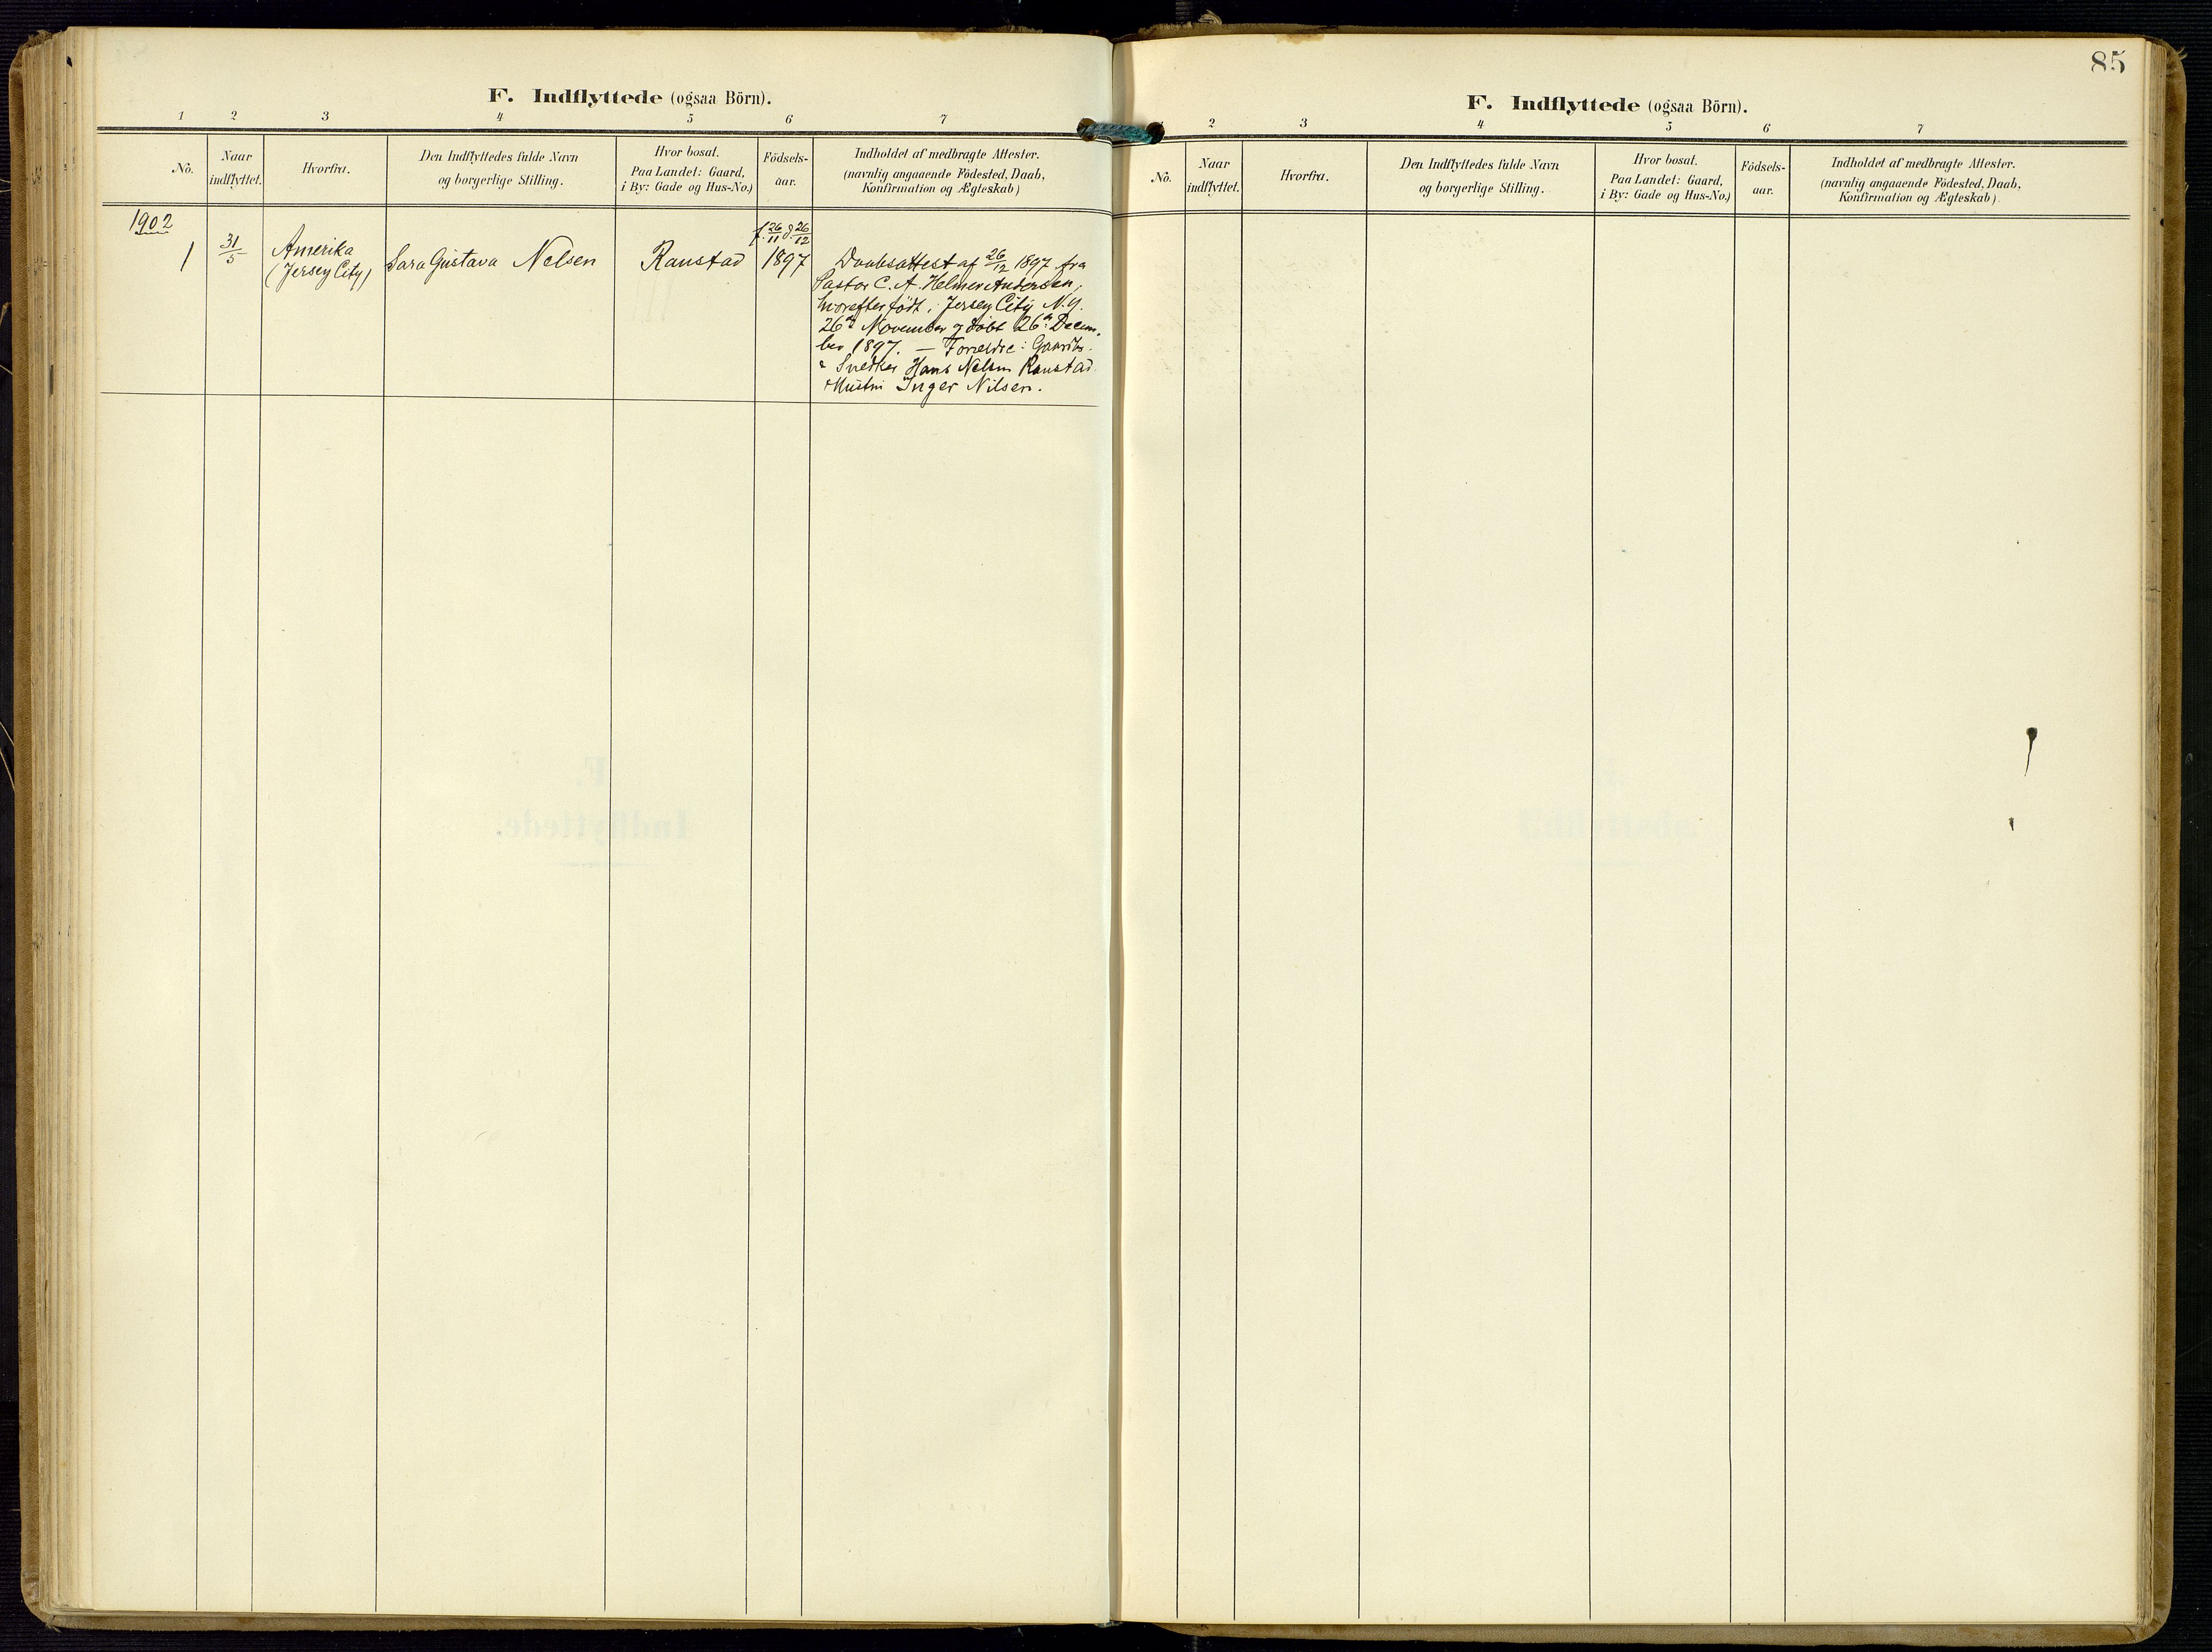 85
F. Indflyttede (ogsaa Börn).
1 2 3 4 5 6 7
No.
Naar
indflyttet.
Hvorfra.
Den Indflyttedes fulde Navn
og borgerlige Stilling.
Hvor bosat.
Paa Landet: Gaard,
i By: Gade og Hus-No.)
Födsels-
aar.
Indholdet af medbragte Attester.
(navnlig angaaende Födested, Daab,
Konfirmation og Ægteskab)
1902
1
31/5
Amerika
(Jersey City)
Sara Gustava Nelsen
Raustad
f. 26/11 d 26/12
1897
Daabsattest af 26/12 1897 fra
Pastor C. A. Helmer Andersen,
hvorefter født i Jersey City N.Y.
26de November og døbt 26de Decem-
ber 1897. — Forældre:
Snedker Hans Nelsen Raustad
Hustru Inger Nilsen.
F. Indflyttede (ogsaa Börn).
2 3 4 5 6 7
No.
Naar
indflyttet.
Hvorfra.
Den Indflyttedes fulde Navn
og borgerlige Stilling.
Hvor bosat.
Paa Landet: Gaard,
i By: Gade og Hus-No.)
Födsels-
aar.
Indholdet af medbragte Attester.
(navnlig angaaende Födested, Daab,
Konfirmation og Ægteskab).